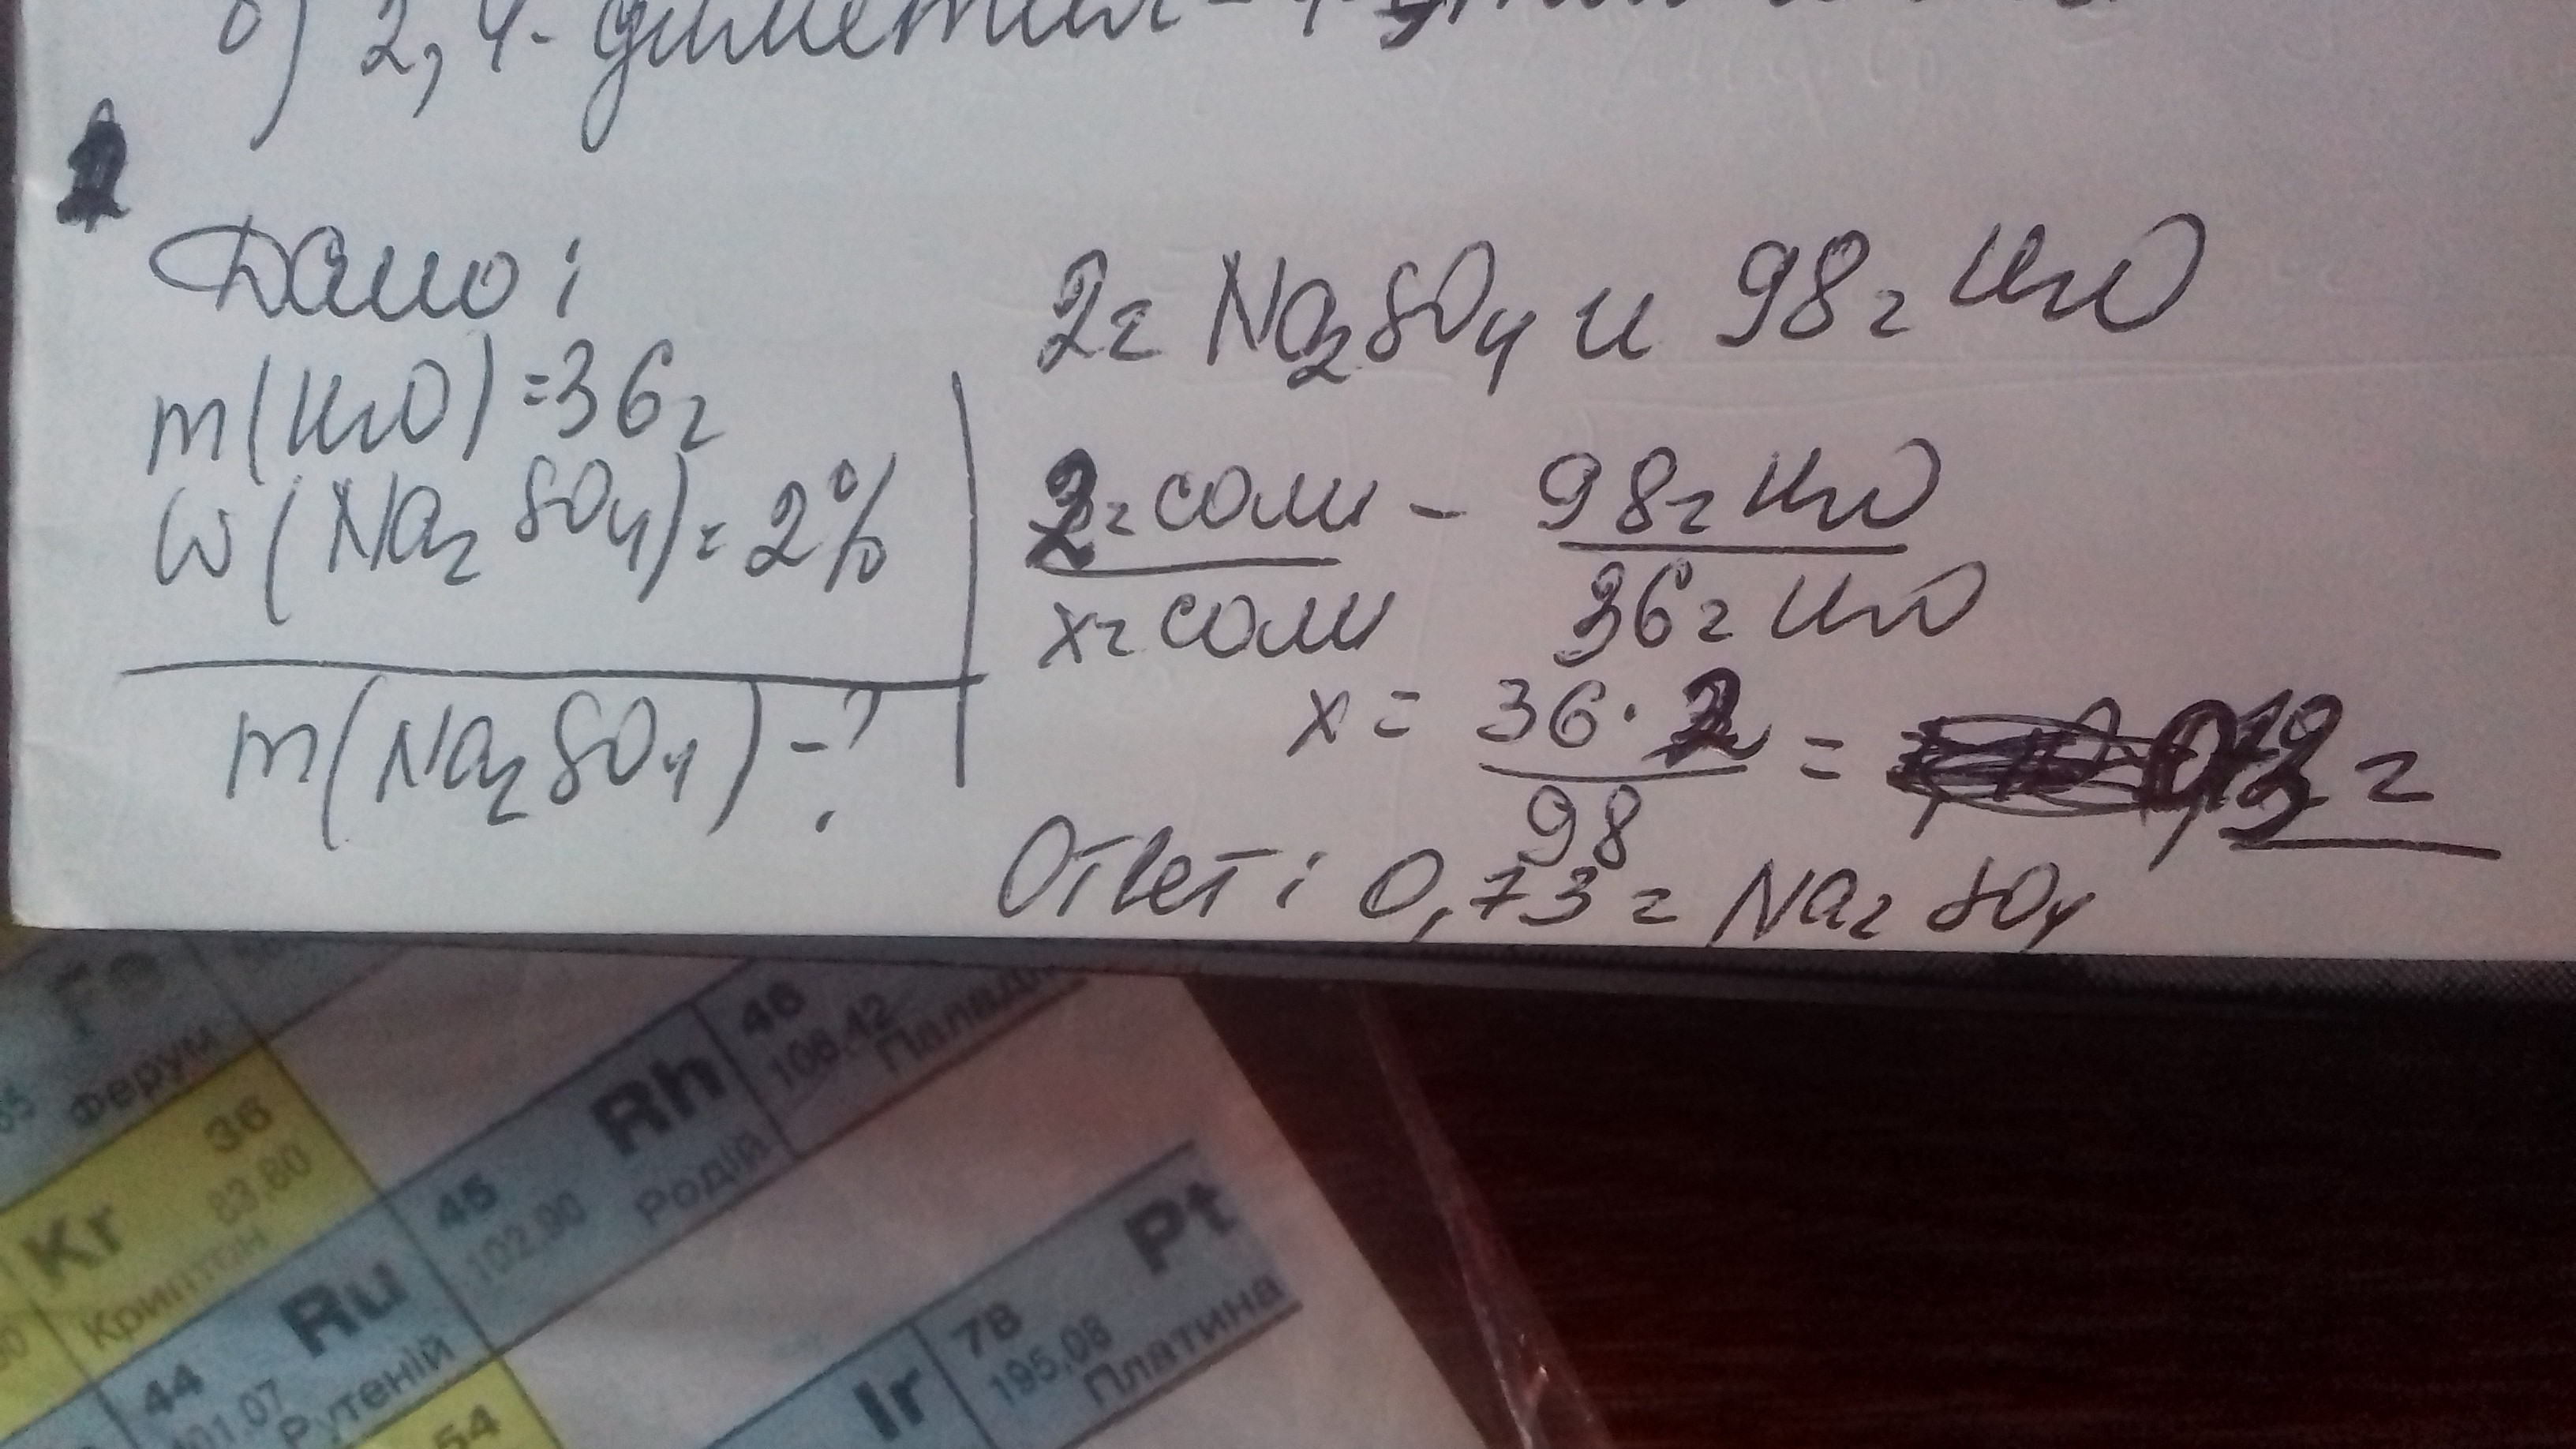 б) 2,4-диметил
Дано:
m(H₂O)=36г
ω(Na₂SO₄)=2%
m(Na₂SO₄)-?
2г Na₂SO₄ и 98г H₂O
2г соли - 98г H₂O
хг соли 36г H₂O
x = 36·2 / 98 = 0,73 г
Ответ: 0,73г Na₂SO₄
Ферум
36
Kr
83,80
Криптон
44
Ru
101.07
Рутеній
45
Rh
102,90
Родій
46
106.42
Паладі
54
Ir
78
Pt
195,08
Платина